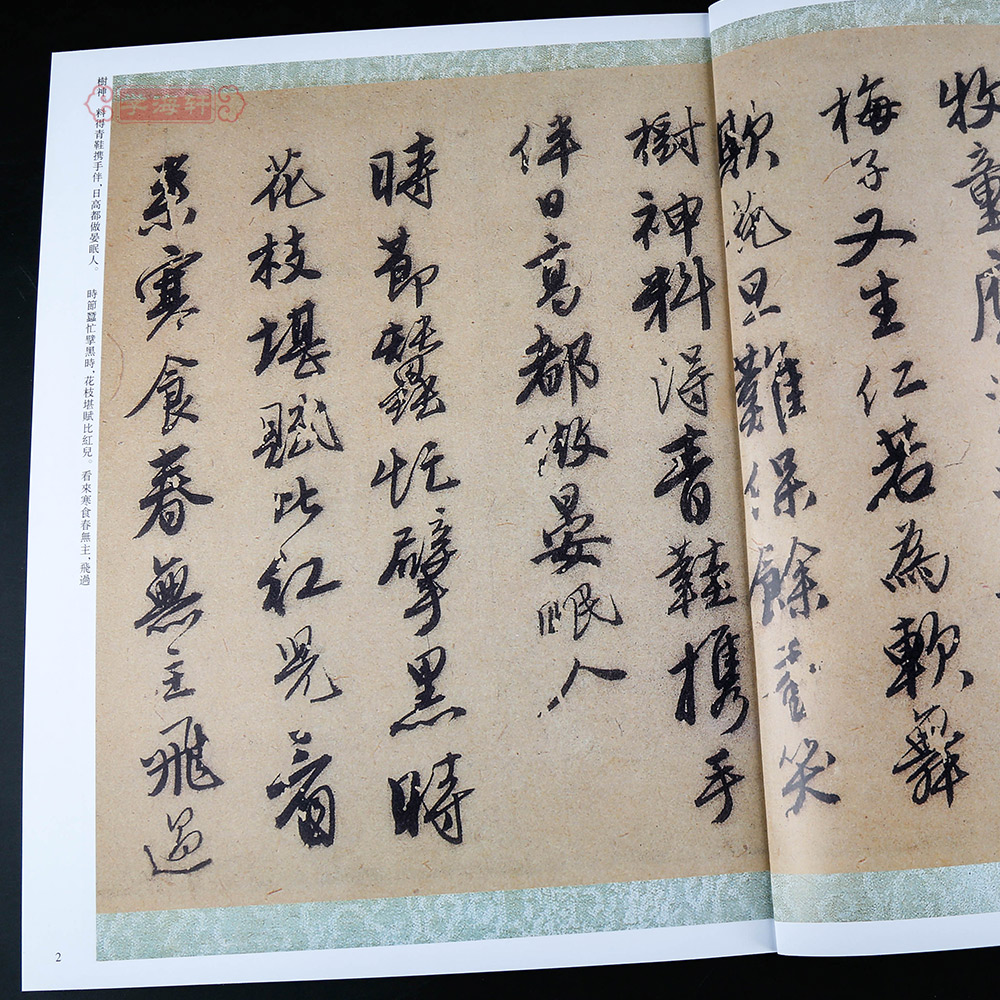 牧童
梅子又生仁若為軟舞
欺花旦難保餘薑笑
樹神料得青鞋攜手
伴日高都做晏眠人
時節蠶忙擘黑時
花枝堪賦比紅兒看
來寒食春無主飛過
樹神。料得青鞋携手伴,日高都做晏眠人。
時節蠶忙擘黑時,花枝堪賦比紅兒。看來寒食春無主,飛過
学海轩
2